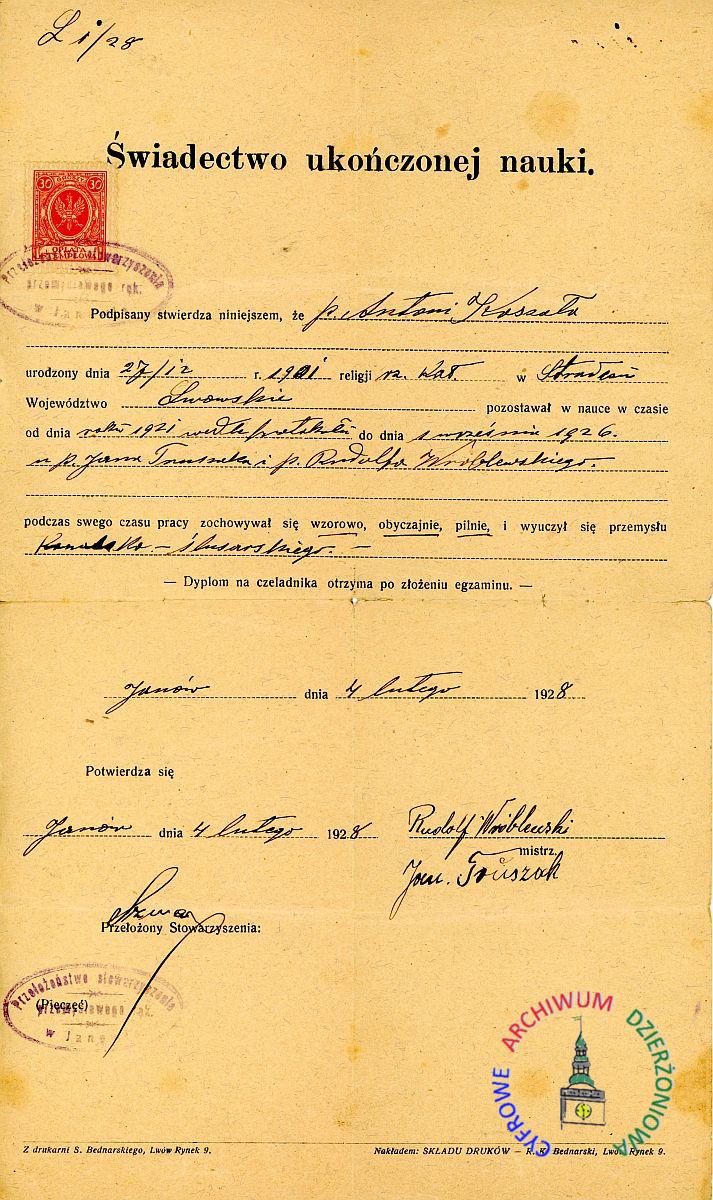 L 1/28
Świadectwo ukończonej nauki.
30 GROSZY 30
OPŁATA
STEMPLOWA
Przełożeństwo stowarzyszenia
przemysłowego ręk.
w Jan
Podpisany stwierdza niniejszem, że p. Antoni Koszała
urodzony dnia 27/12 r. 1901 religji rz. kat. w Stradczu
Województwo Lwowskie pozostawał w nauce w czasie
od dnia roku 1921 wedle protokołu do dnia 1 września 1926.
u p. Jana Truszaka i p. Rudolfa Wróblewskiego.
podczas swego czasu pracy zochowywał się wzorowo, obyczajnie, pilnie, i wyuczył się przemysłu
Kowalsko - ślusarskiego. -
— Dyplom na czeladnika otrzyma po złożeniu egzaminu. —
Janów dnia 4 lutego 1928
Potwierdza się
Janów dnia 4 lutego 1928
Rudolf Wróblewski
mistrz.
Jan. Truszak
Przełożony Stowarzyszenia:
Przełożeństwo stowarzyszenia
(Pieczęć)
przemysłowego ręk.
w Jan
CYFROWE ARCHIWUM DZIERŻONIOWA
Z drukarni S. Bednarskiego, Lwów Rynek 9.
Nakładem: SKŁADU DRUKÓW — R. K. Bednarski, Lwów, Rynek 9.